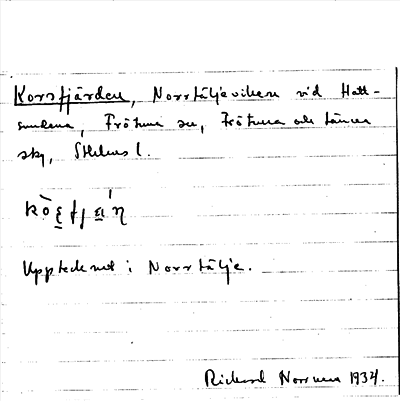 Korsfjärden, Norrtäljeviken vid Hatt-
sundena, Frötuna sn, Frötuna och Länna
skg, Sthlms l.
Upptecknat i Norrtälje.
Rickard Norrman 1934.